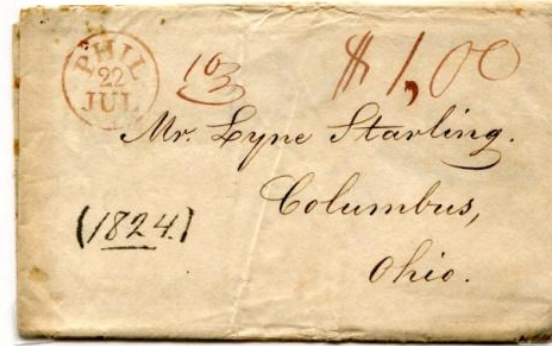 PHIL
22
JUL
103
$1,00
Mr. Lyne Starling.
Columbus,
(1824.)
Ohio.